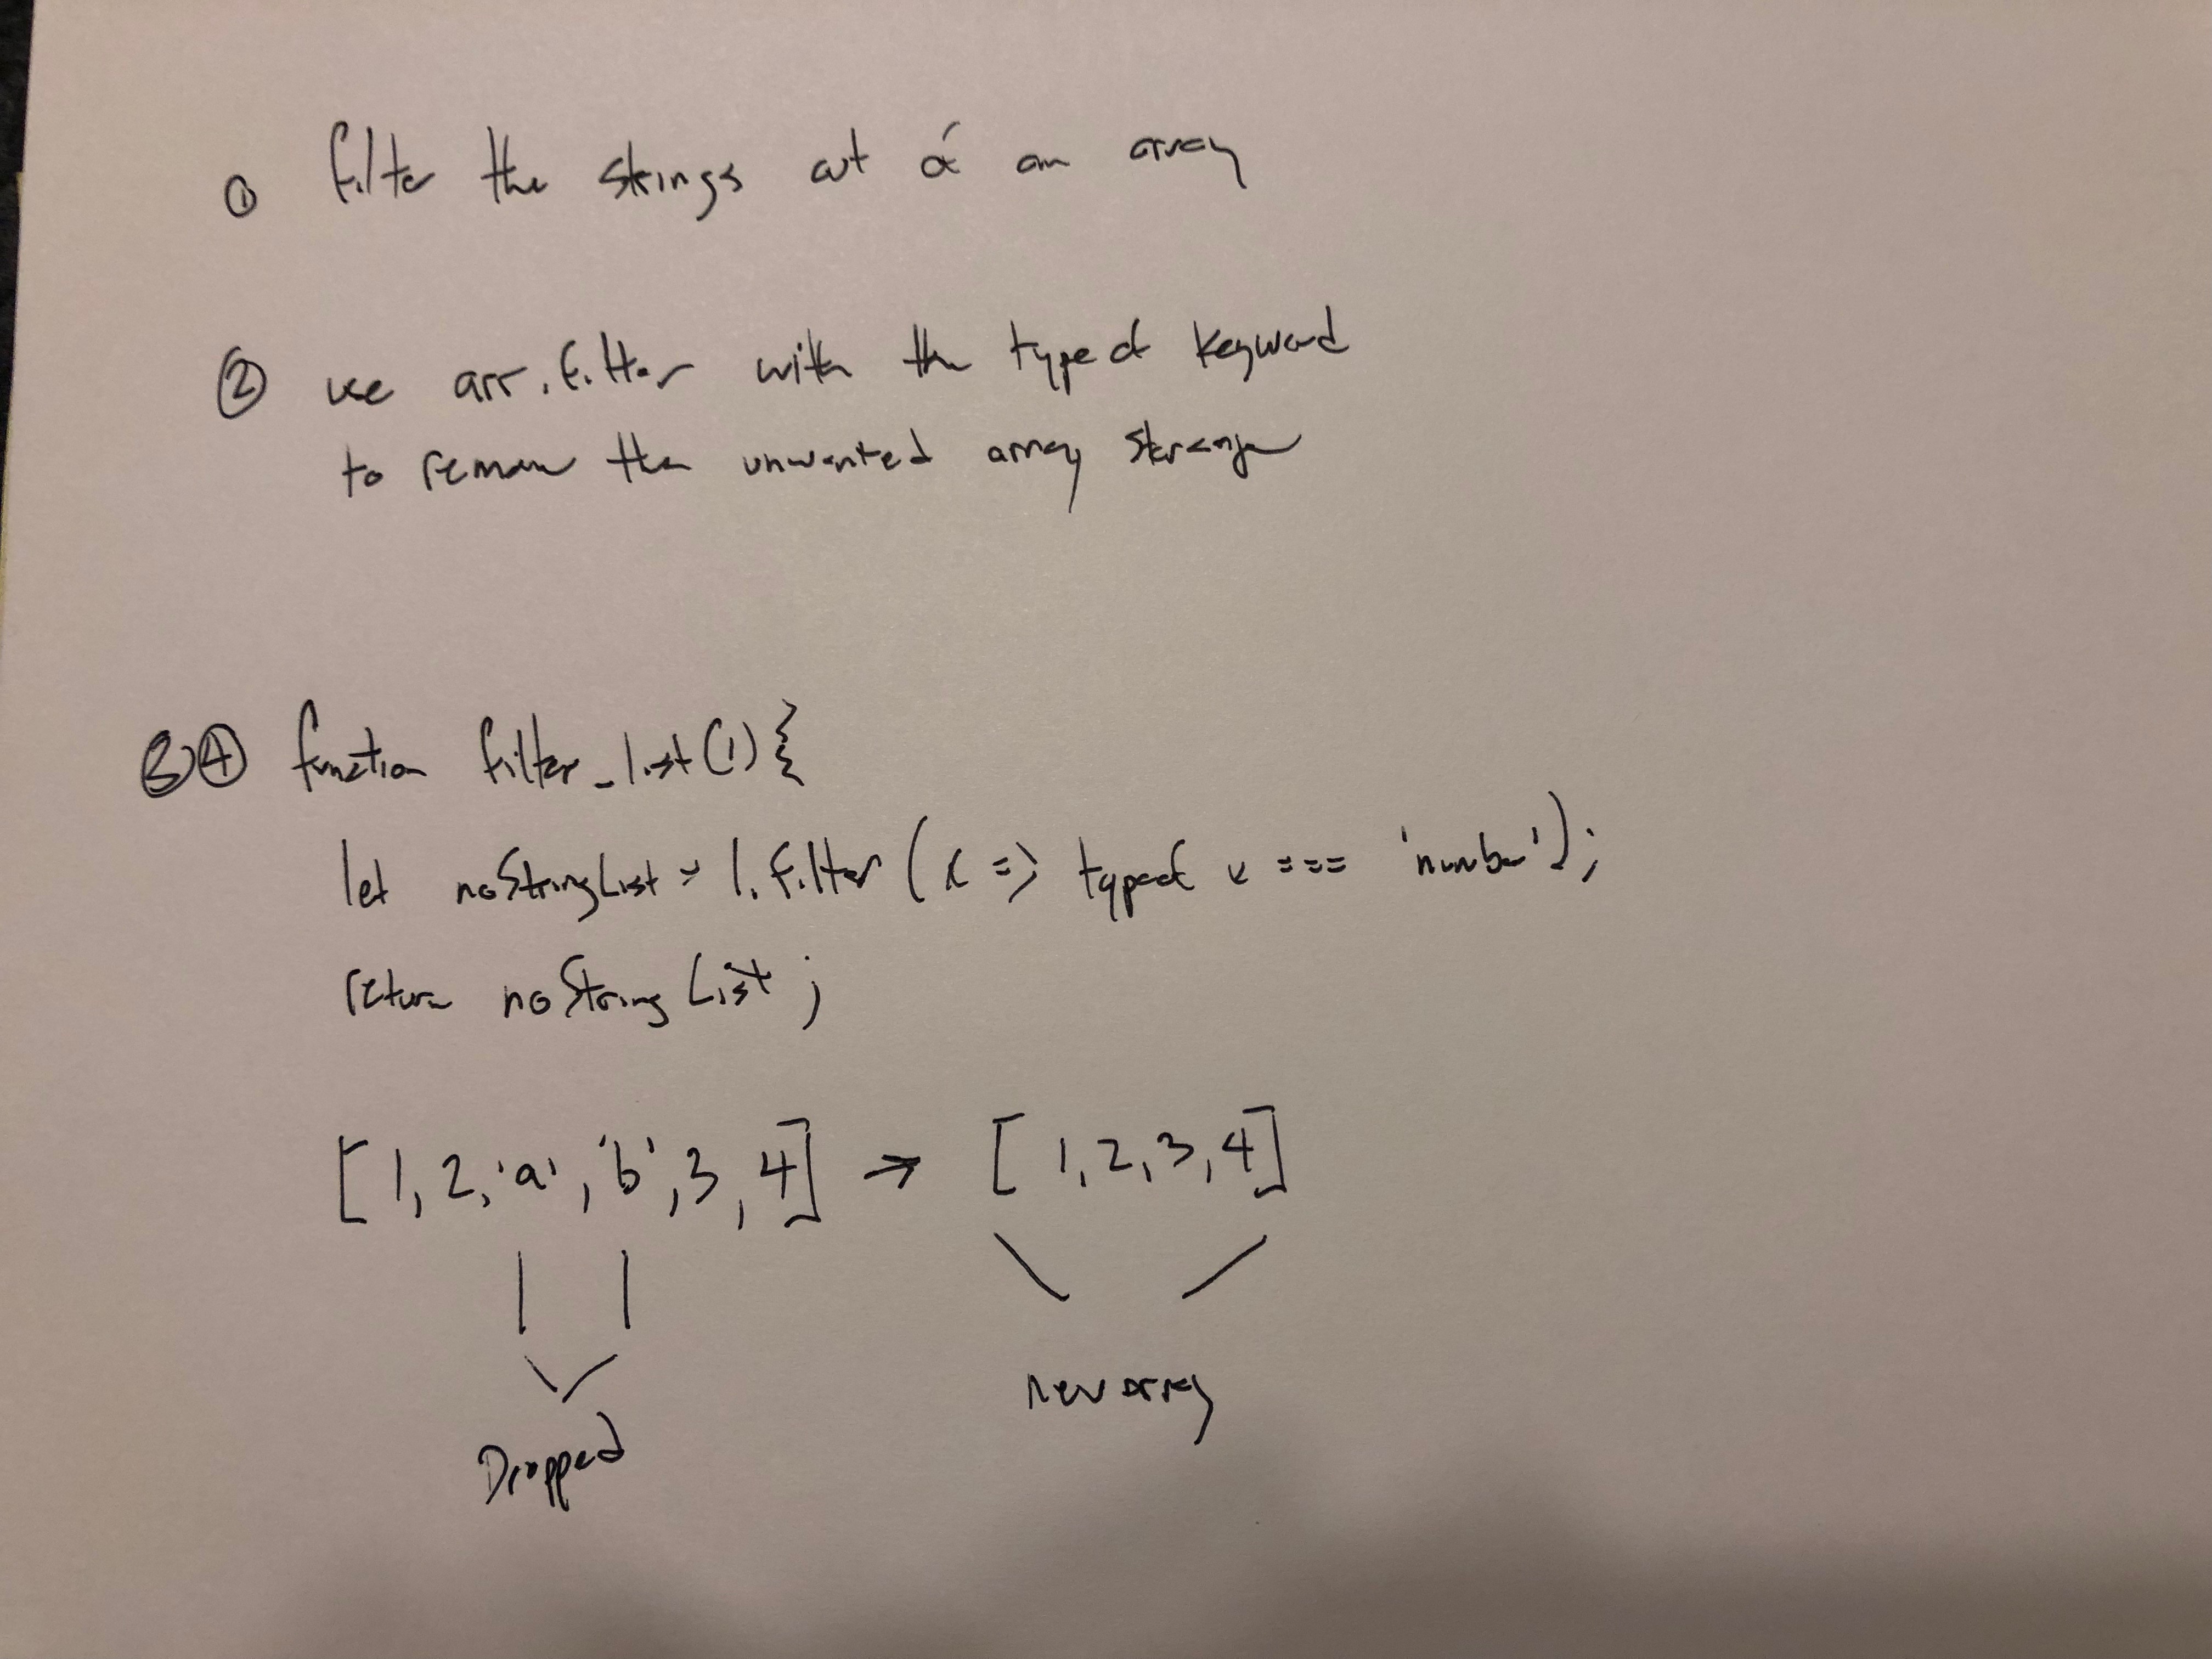 ① filter the strings out of an array
② use arr.filter with the typeof keyword
to remove the unwanted array strings
③④ function filter_list(l){
let noStringList = l.filter(x => typeof x === 'number');
return noStringList;
[1,2,'a','b',3,4] → [1,2,3,4]
Dropped
new array